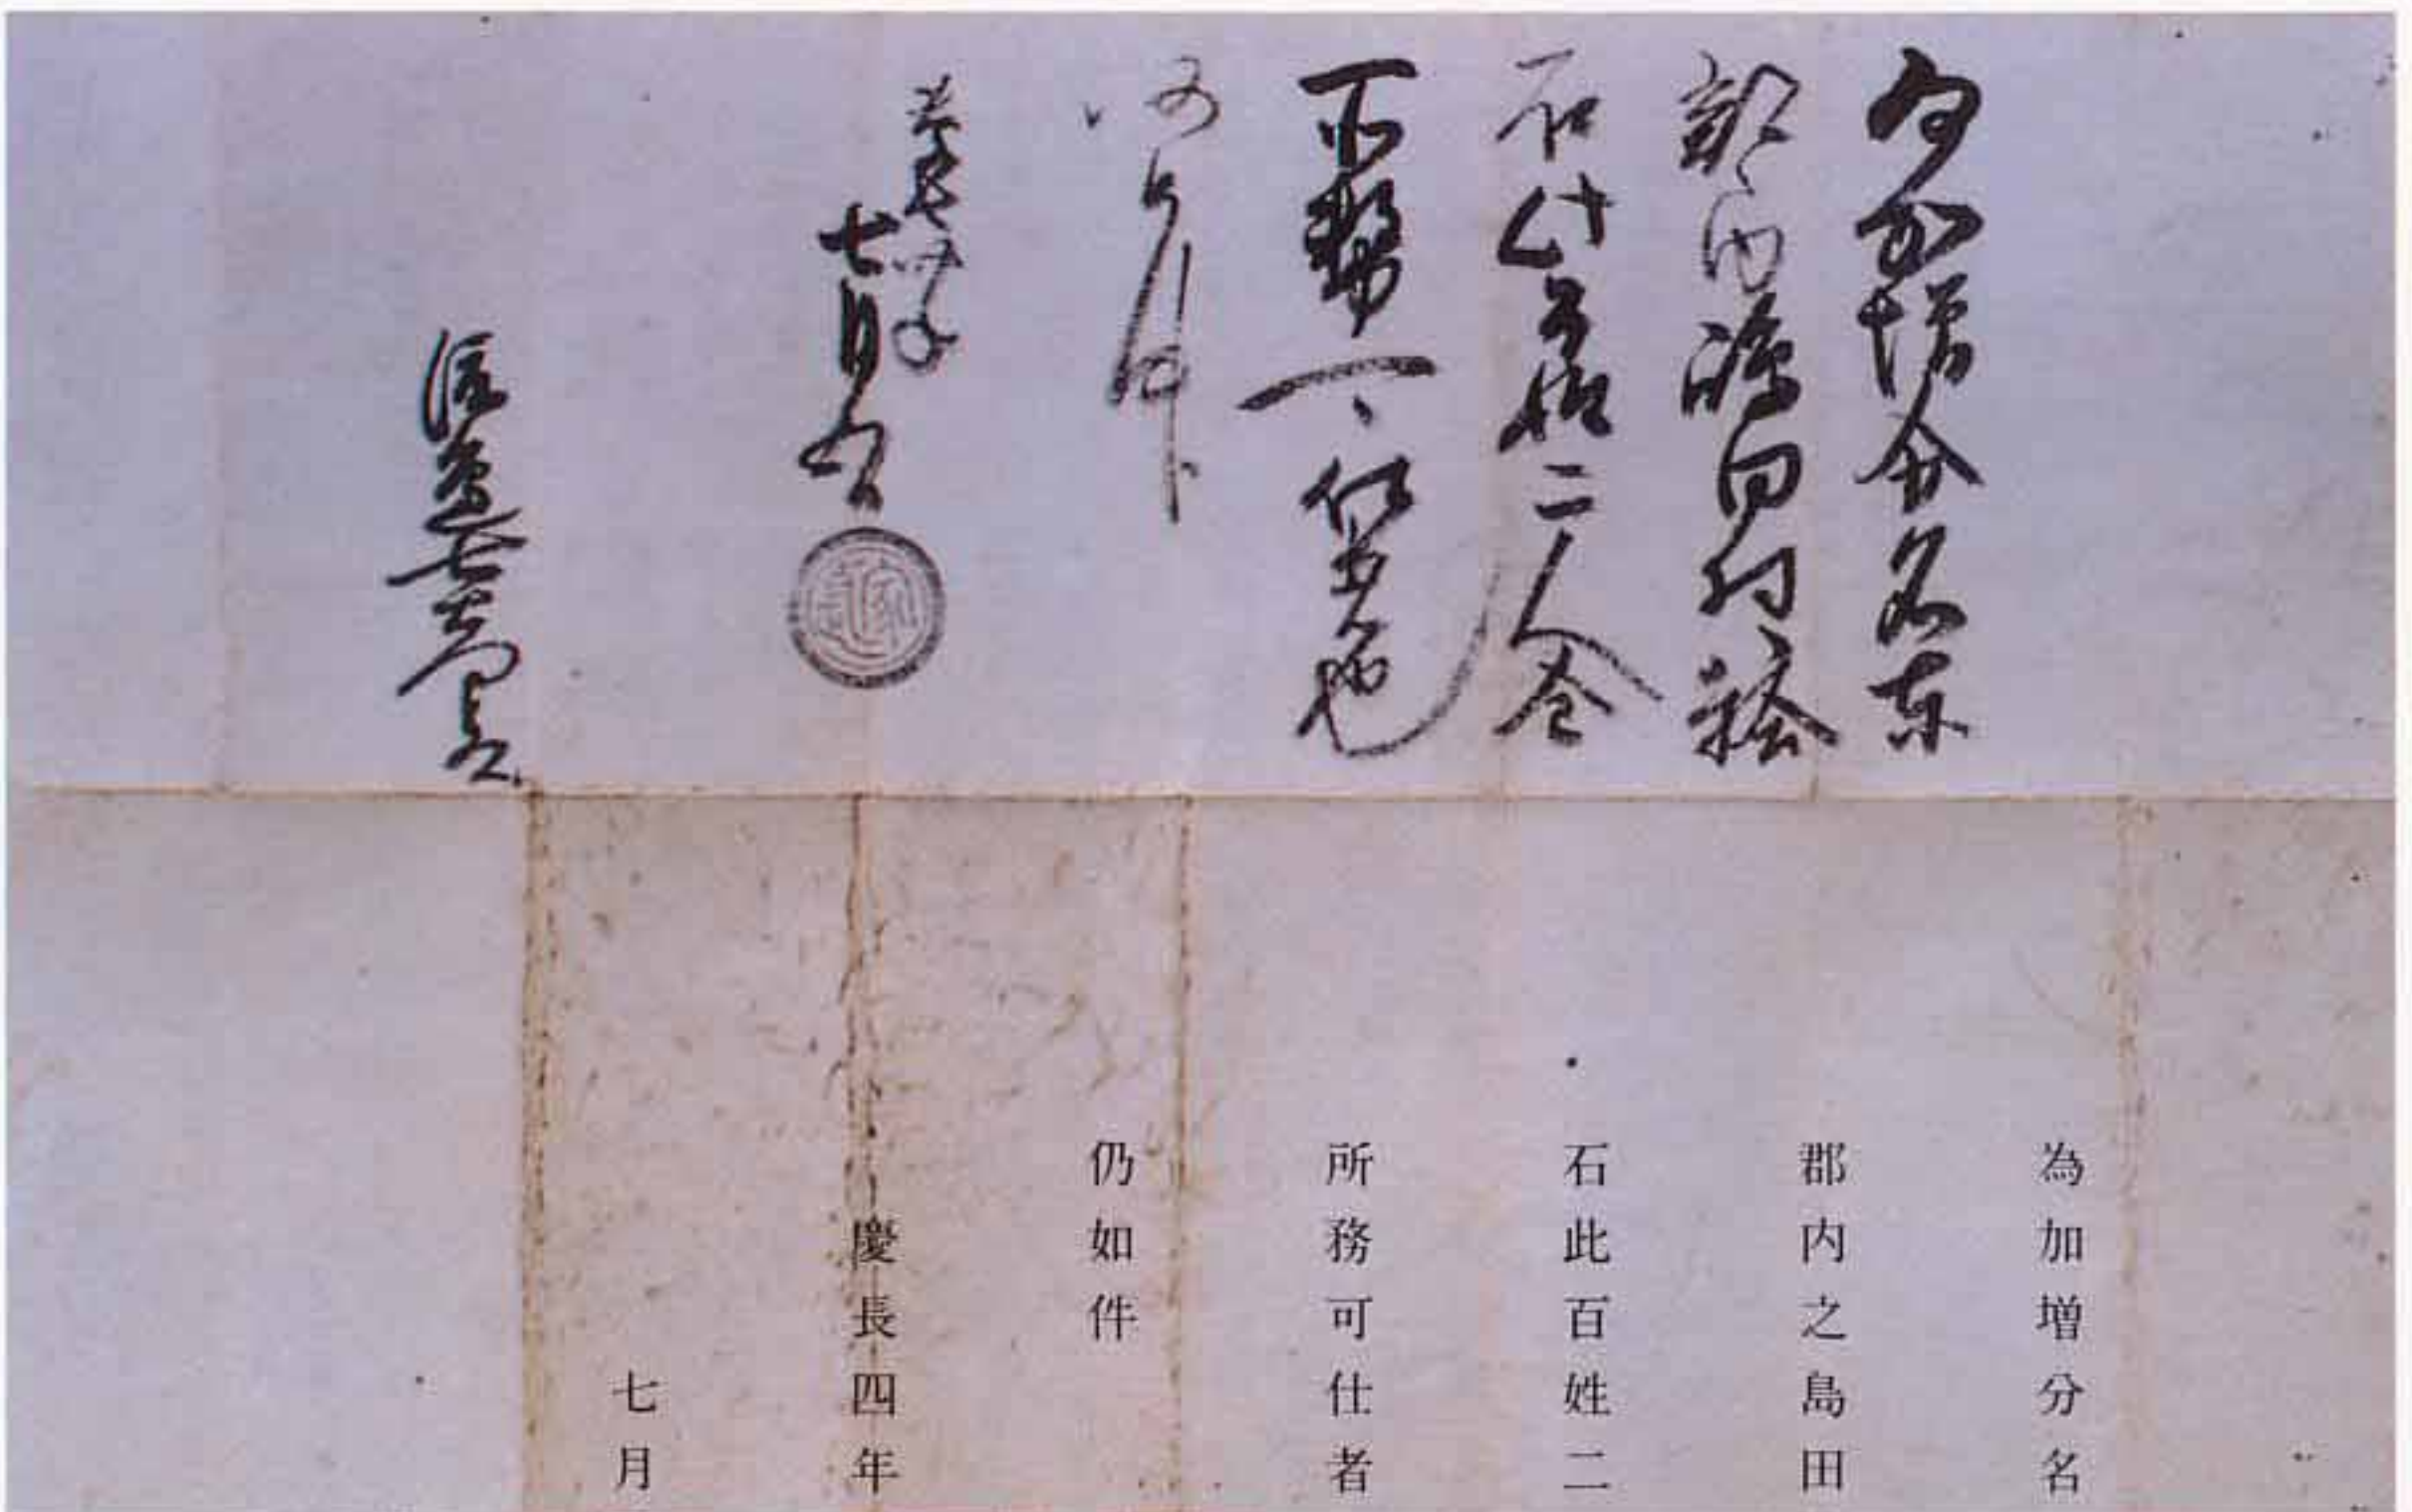 為加増分名東
郡内嶋田村拾
石此百姓二人令
所務可仕者也
仍如件
慶長四年
七月
為加増分名
郡内之島田
石此百姓二
所務可仕者
仍如件
慶長四年
七月